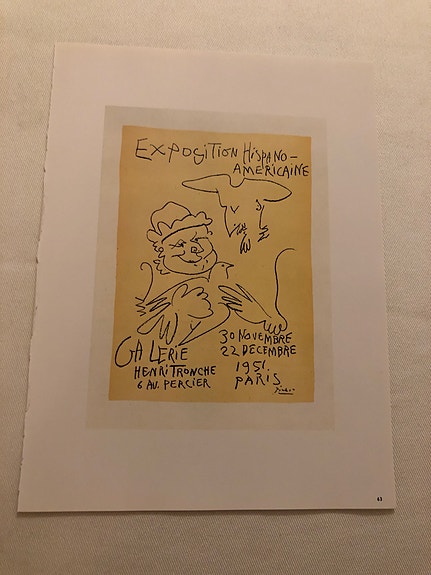 EXPOSITION HISPANO-
AMERICAINE
GALERIE
HENRI TRONCHE
6 AV. PERCIER
30 NOVEMBRE
22 DECEMBRE
1951.
PARIS
Picasso
63